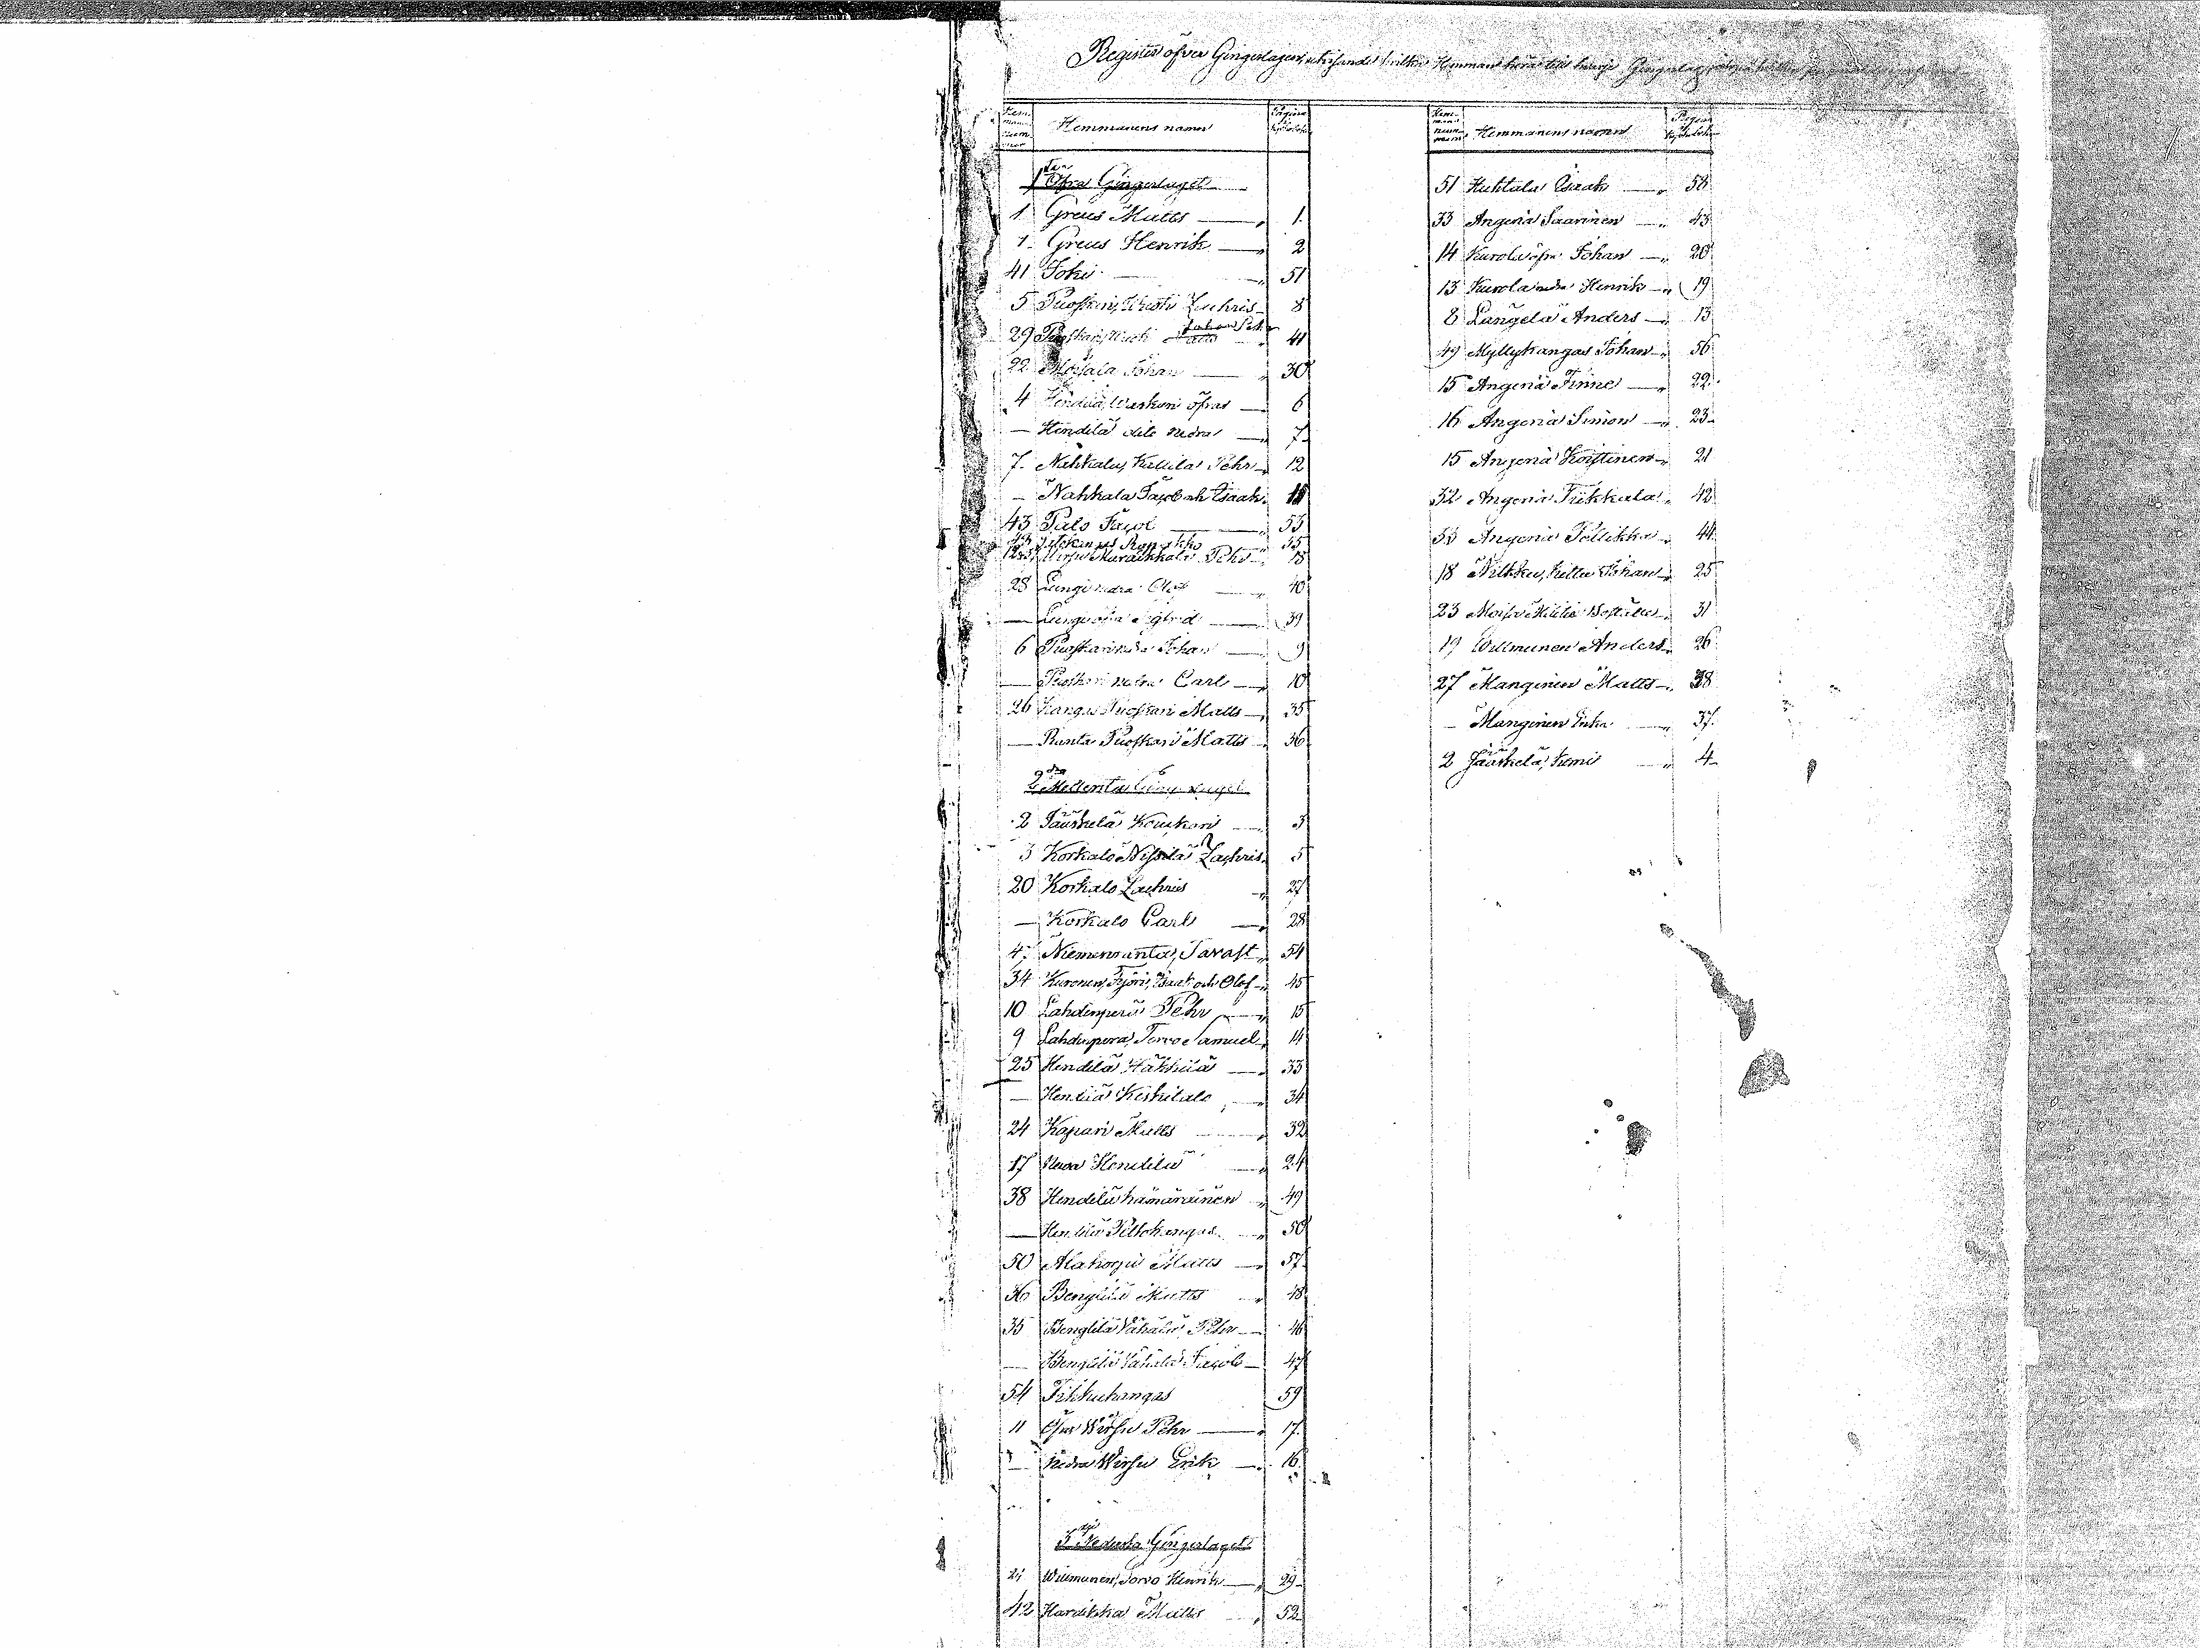 Register öfver Gingerlagen, utvisande hvilka Hemman höra till hvarje Gingerlag
Hemmans nummer Hemmanens namn Pagina i
1sta Öfra Gingerlaget
1 Greus Matts — " 1
1 Greus Henrik — " 2
41 Joki — " 51
5 Puoskari, Zachris " 8
29 Puoskari Johan Petter " 41
22 Johan — " 30
4 Hendilä, Waskuri öfra — " 6
— Hendilä dito nedra — " 7
7 Nahkala, Kallila Pehr " 12
— Nahkala Jacob och Isaak " 11
43 Palo Jacob — " 53
" 55
Wirsu Maraikkala Pehr " 18
28 Lungi nedra Olof " 40
— Lungi öfra Sigfrid " 39
6 Puoskari nedra Johan — " 9
— Puoskari nedra Carl — " 10
26 Kangas Puoskari Matts — " 35
— Ranta Puoskari Matts " 36
2dra Mellersta Gingerlaget
2 Jääskelä Kouskari — " 3
3 Korkalo Nissilä Zachris " 5
20 Korkalo Zachris " 27
— Korkalo Carl — " 28
47 Niemenranta, Tavast " 54
34 Kuronen, Isaak och Olof " 45
10 Lahdenperä Pehr — " 15
9 Lahdenperä, Torvo Samuel " 14
25 Hendilä Häkkilä — " 33
— Hendilä Keskitalo " 34
24 Kapari Matts — " 32
17 Hendilä — " 24
38 Hendilä hämäräinen " 49
— Hendilä Peltokangas " 50
50 Alakorju Matts — " 57
36 Bengtilä Matts " 48
35 Bengtilä Vähälä, Pehr — " 46
— Bengtilä Vähälä Jacob — 47
54 Pikkukangas 59
11 Öfra Wirsu Pehr — " 17
— Nedra Wirsu Erik — " 16
3dje Nedersta Gingerlaget
21 Willmunen, Torvo Henrik — " 29
42 Harikka Matts " 52
Hemmans nummer Hemmanens namn Pagina i
51 Huhtala Isaak — " 58
33 Angeriä Saarinen — " 43
14 Kurola öfra Johan — " 20
13 Kurola nedra Henrik — " 19
8 Längelä Anders — " 13
49 Myllykangas Johan — " 56
15 Angeriä Finne — " 22
16 Angeriä Simon — " 23
15 Angeriä Koistinen " 21
32 Angeriä Tikkala " 42
33 Angeriä Pellikka " 44
18 Johan " 25
23 " 31
19 Willmunen Anders " 26
27 Manginen Matts — " 38
— Manginen — " 37
2 Jääskelä, Kemi " 4